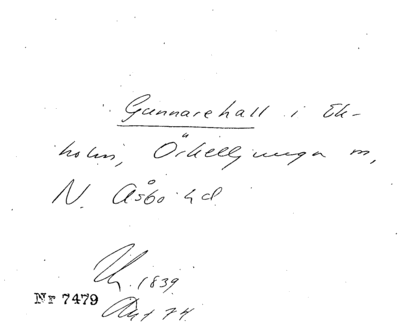 Gunnarehall i Ek-
holm, Örkelljunga sn,
N. Åsbo hd
1839
Nr 7479